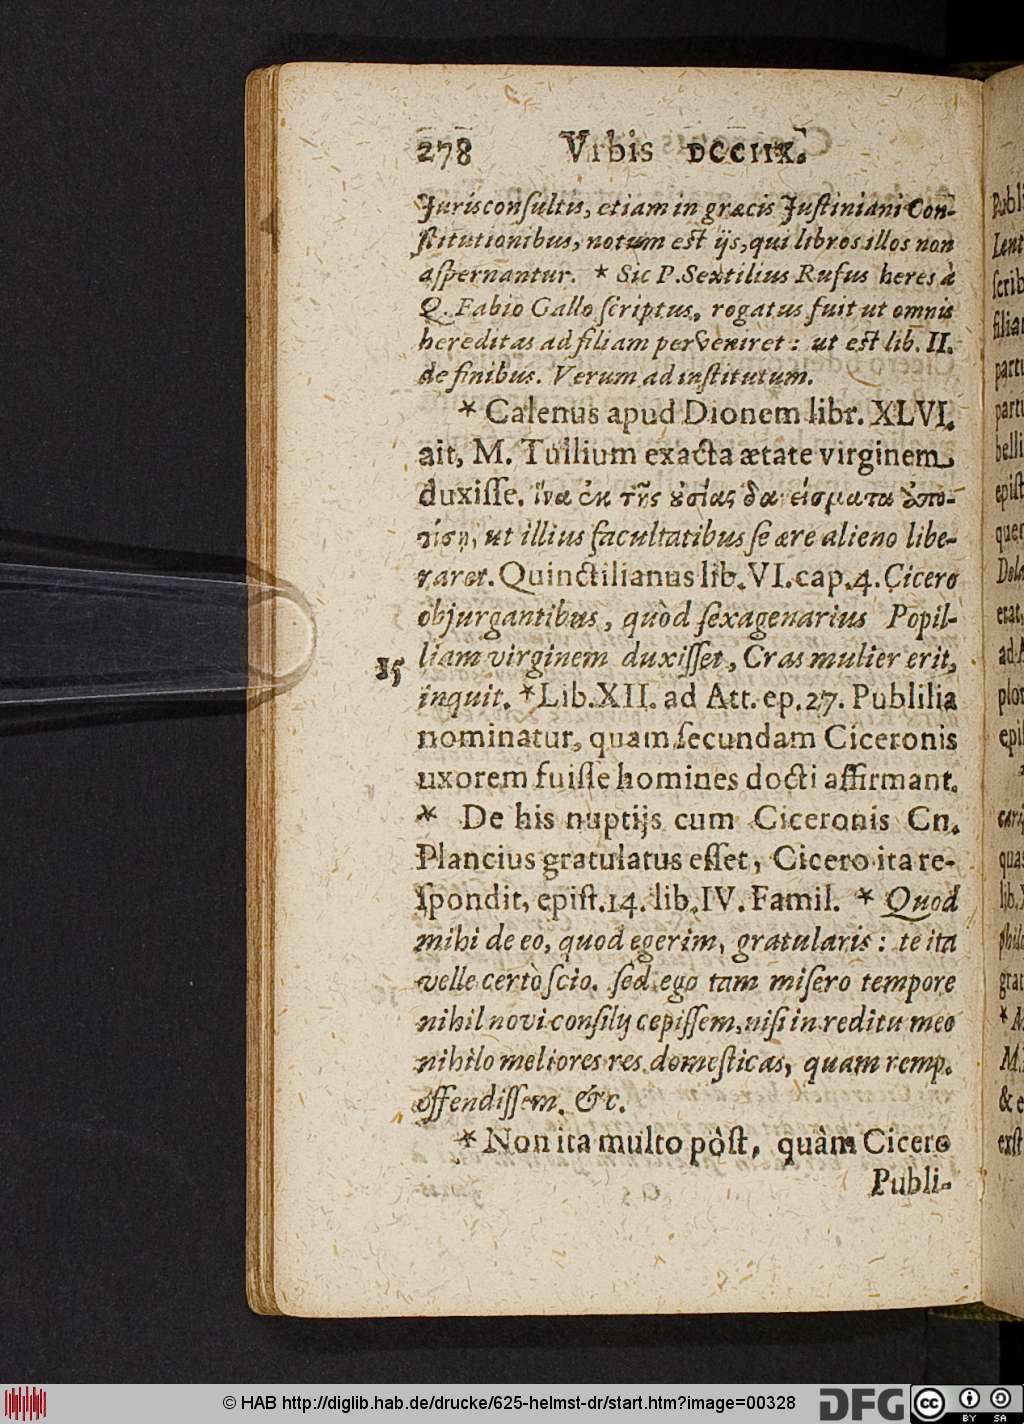 278 Vrbis DCCIIX.
Jurisconſultis, etiam in græcis Juſtiniani Con-
ſtitutionibus, notum eſt ijs, qui libros illos non
aſpernantur. * Sic P. Sextilius Rufus heres à
Q. Fabio Gallo ſcriptus, rogatus fuit ut omnis
hereditas ad filiam perveniret: ut eſt lib. II.
de finibus. Verum ad inſtitutum.
* Calenus apud Dionem libr. XLVI.
ait, M. Tullium exacta ætate virginem
duxiſſe. ἵνα ἐκ τῆς ȣσίας δανείσματα ἀπο-
τίσῃ, ut illius facultatibus ſe ære alieno libe-
raret. Quinctilianus lib. VI. cap. 4. Cicero
objurgantibus, quòd ſexagenarius Popil-
liam virginem duxiſſet, Cras mulier erit,
15
inquit. * Lib. XII. ad Att. ep. 27. Publilia
nominatur, quam ſecundam Ciceronis
uxorem fuiſſe homines docti affirmant.
* De his nuptijs cum Ciceronis Cn.
Plancius gratulatus eſſet, Cicero ita re-
ſpondit, epiſt. 14. lib. IV. Famil. * Quod
mihi de eo, quod egerim, gratularis: te ita
velle certò ſcio. ſed ego tam miſero tempore
nihil novi conſilij cepiſſem, niſi in reditu meo
nihilo meliores res domeſticas, quam remp.
offendiſſem. &c.
* Non ita multo pòſt, quàm Cicero
Publi-
© HAB http://diglib.hab.de/drucke/625-helmst-dr/start.htm?image=00328
DFG
cc
BY SA